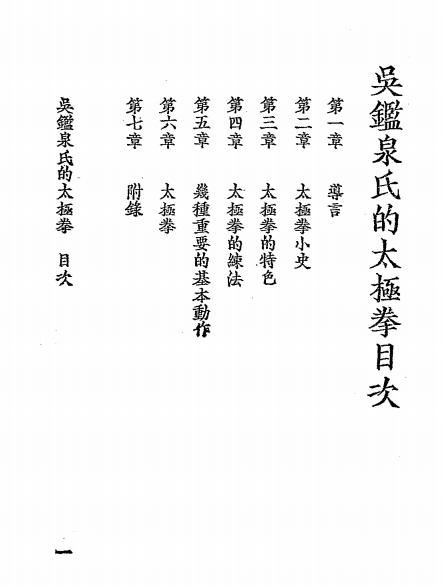 吳鑑泉氏的太極拳目次
第一章 導言
第二章 太極拳小史
第三章 太極拳的特色
第四章 太極拳的練法
第五章 幾種重要的基本動作
第六章 太極拳
第七章 附錄
吳鑑泉氏的太極拳 目次
一